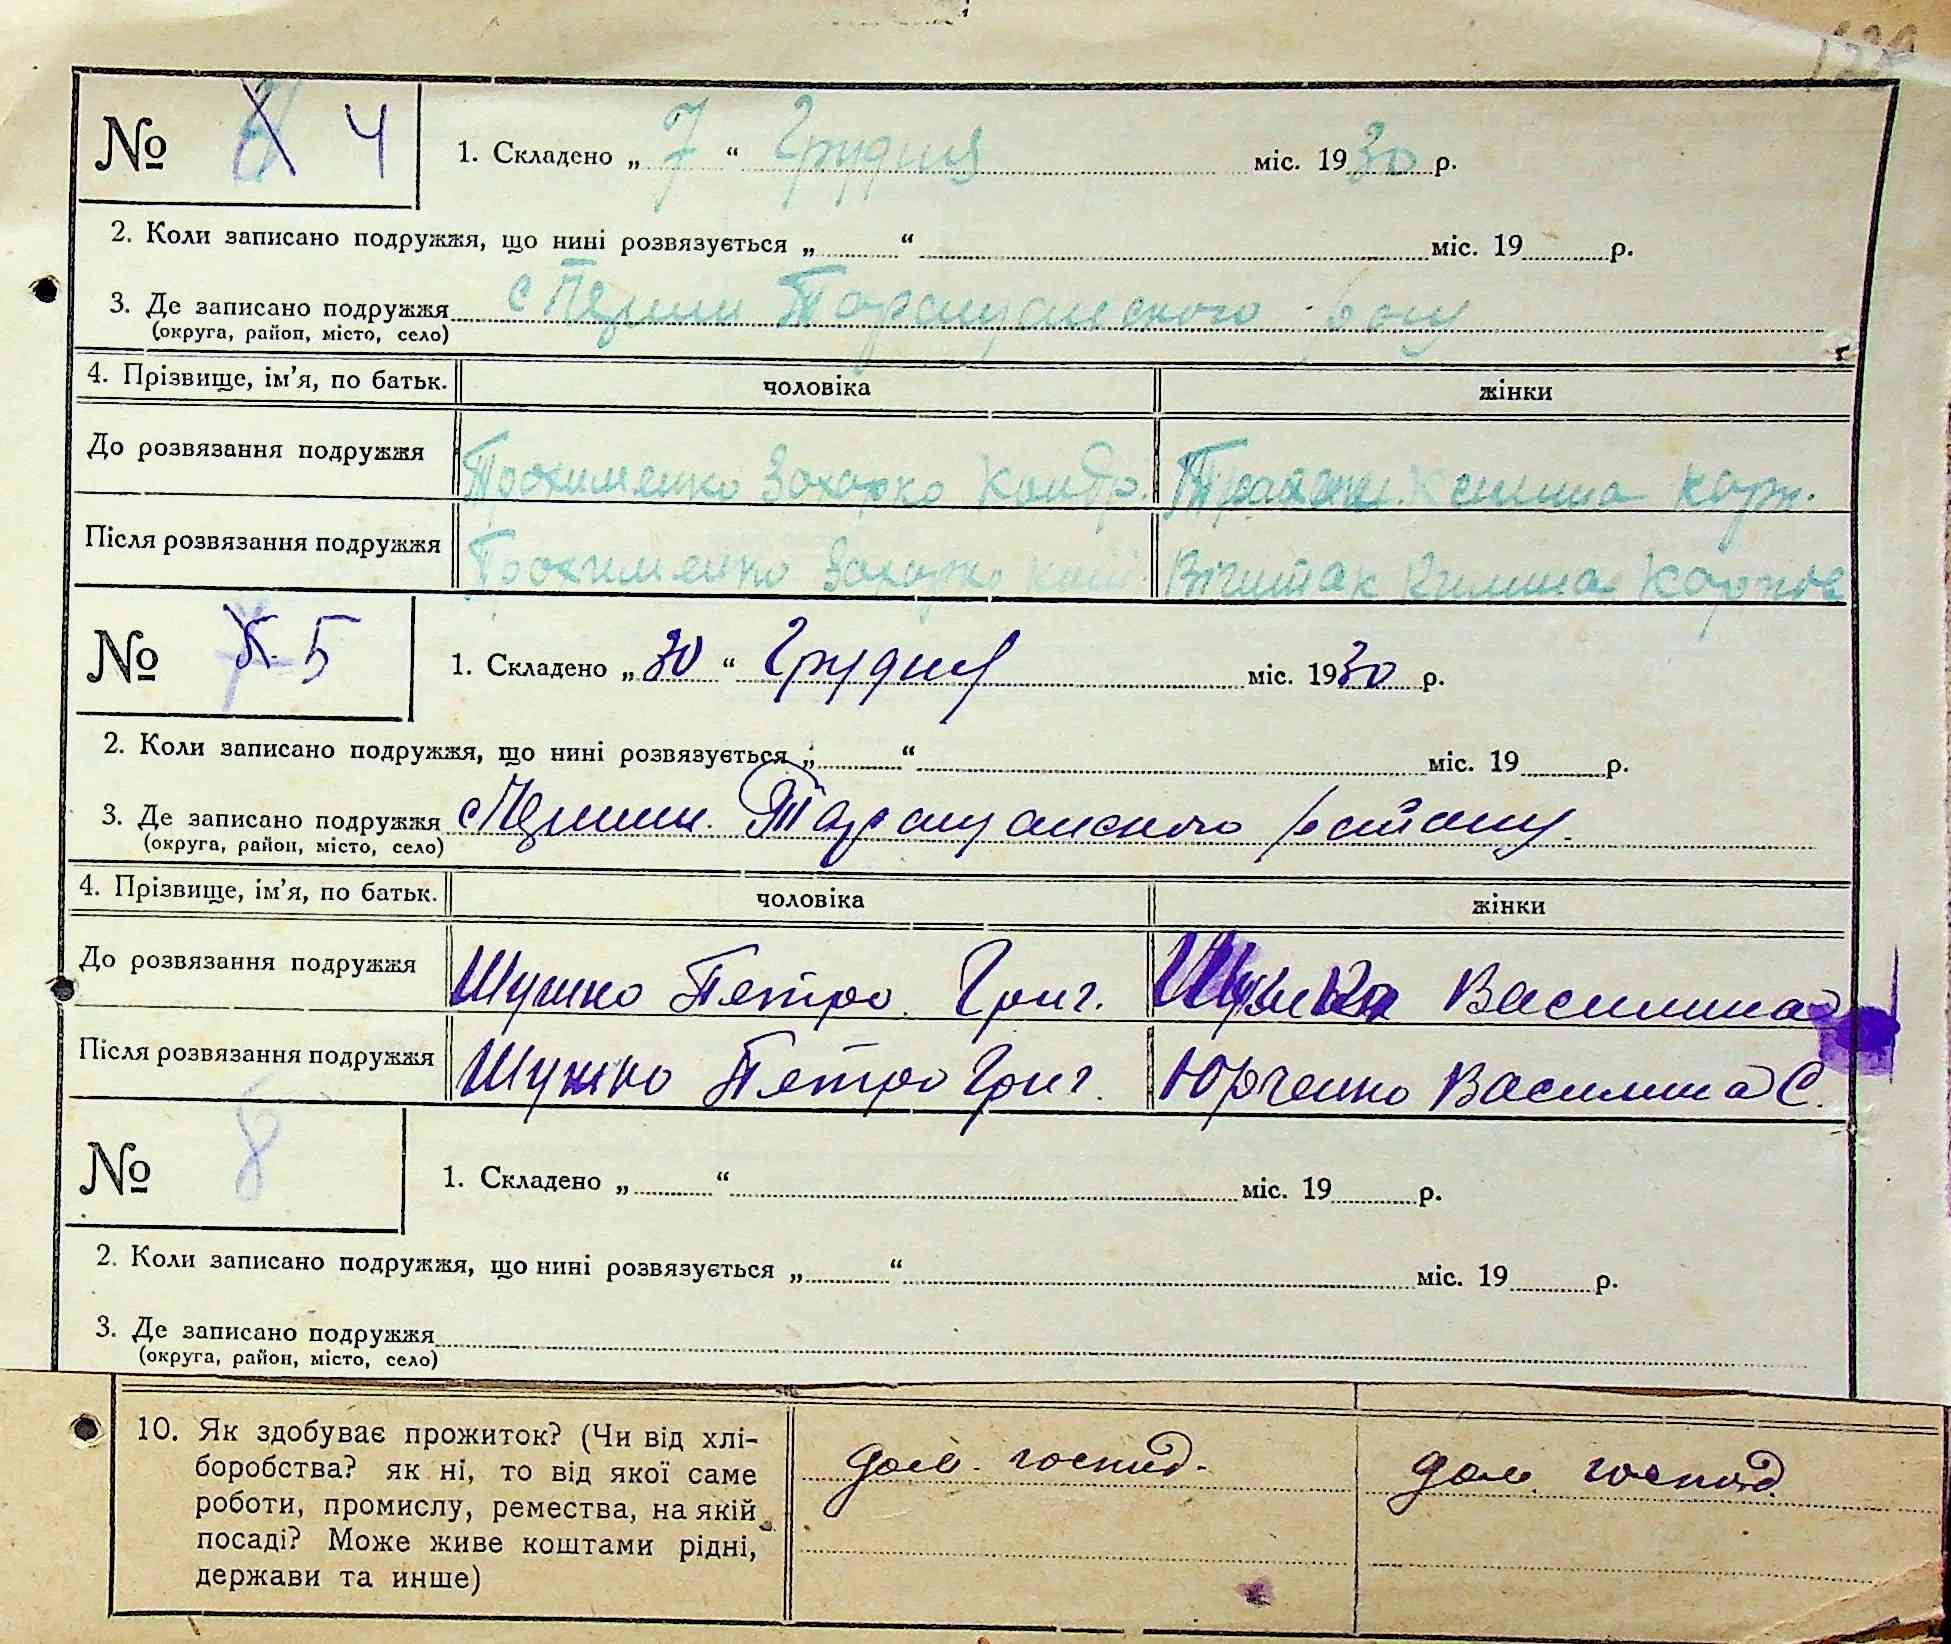 № 4 1. Складено „ 7 “ Грудня міс. 1930 р.
2. Коли записано подружжя, що нині розвязується „ “ міс. 19 р.
3. Де записано подружжя с Таращанського
(округа, район, місто, село)
4. Прізвище, ім’я, по батьк. чоловіка жінки
До розвязання подружжя Трохименко Захарко Кондр. Карп.
Після розвязання подружжя Трохименко Захарко
№ 5 1. Складено „ 30 “ Грудня міс. 1930 р.
2. Коли записано подружжя, що нині розвязується „ “ міс. 19 р.
3. Де записано подружжя с Таращанського району.
(округа, район, місто, село)
4. Прізвище, ім’я, по батьк. чоловіка жінки
До розвязання подружжя Петро Григ. Василина
Після розвязання подружжя Петро Григ. Юрченко Василина С.
№ 8 1. Складено „ “ міс. 19 р.
2. Коли записано подружжя, що нині розвязується „ “ міс. 19 р.
3. Де записано подружжя
(округа, район, місто, село)
10. Як здобуває прожиток? (Чи від хлі- дом. господ. дом. господ.
боробства? як ні, то від якої саме
роботи, промислу, ремества, на якій
посаді? Може живе коштами рідні,
держави та инше)